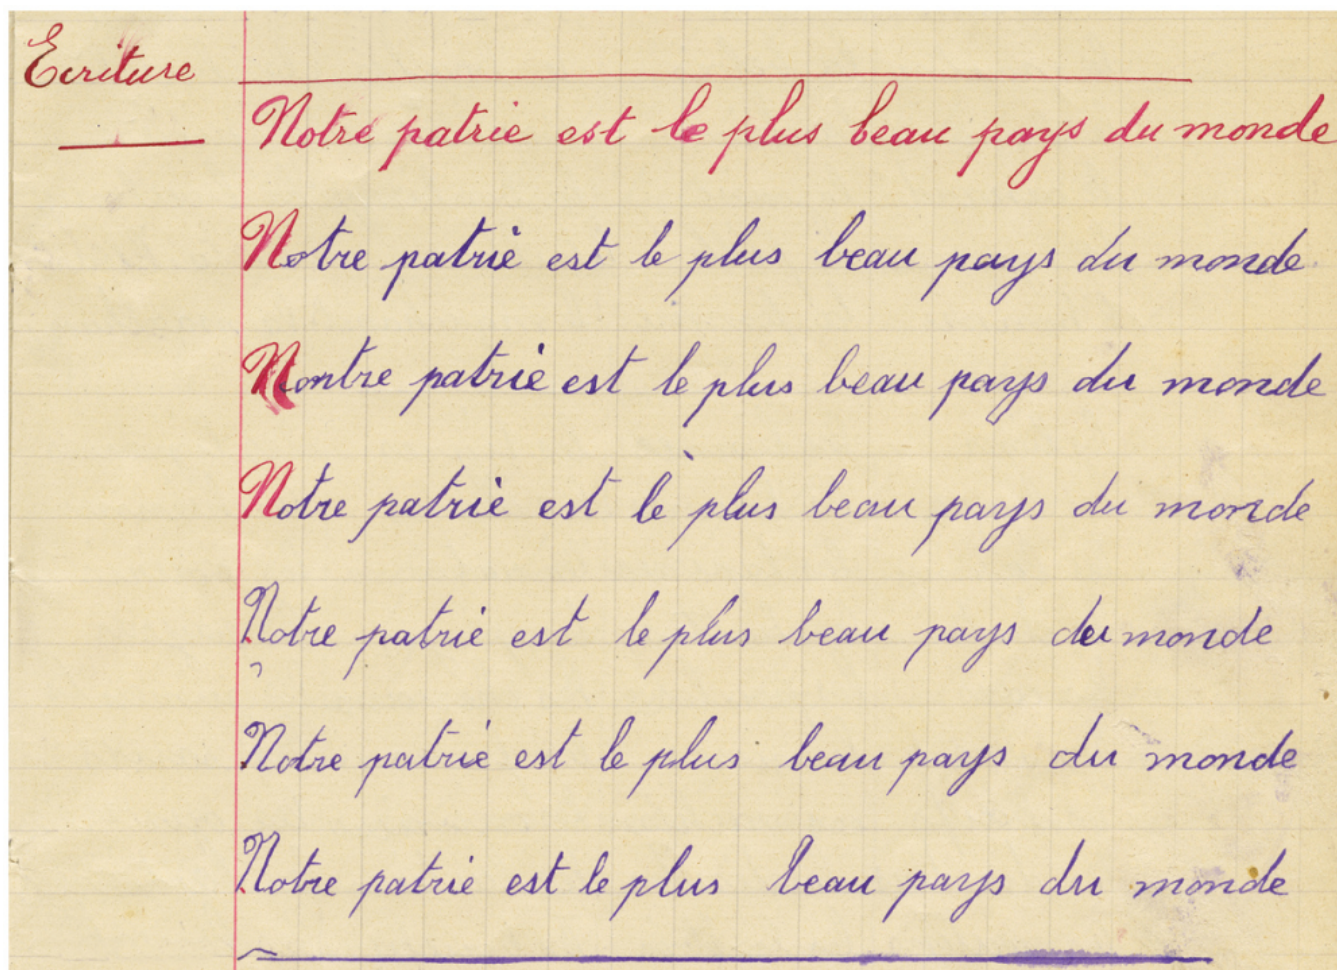 Ecriture
Notre patrie est le plus beau pays du monde
Notre patrie est le plus beau pays du monde.
Nontre patrie est le plus beau pays du monde
Notre patrie est le plus beau pays du monde
Notre patrie est le plus beau pays du monde
Notre patrie est le plus beau pays du monde
Notre patrie est le plus beau pays du monde